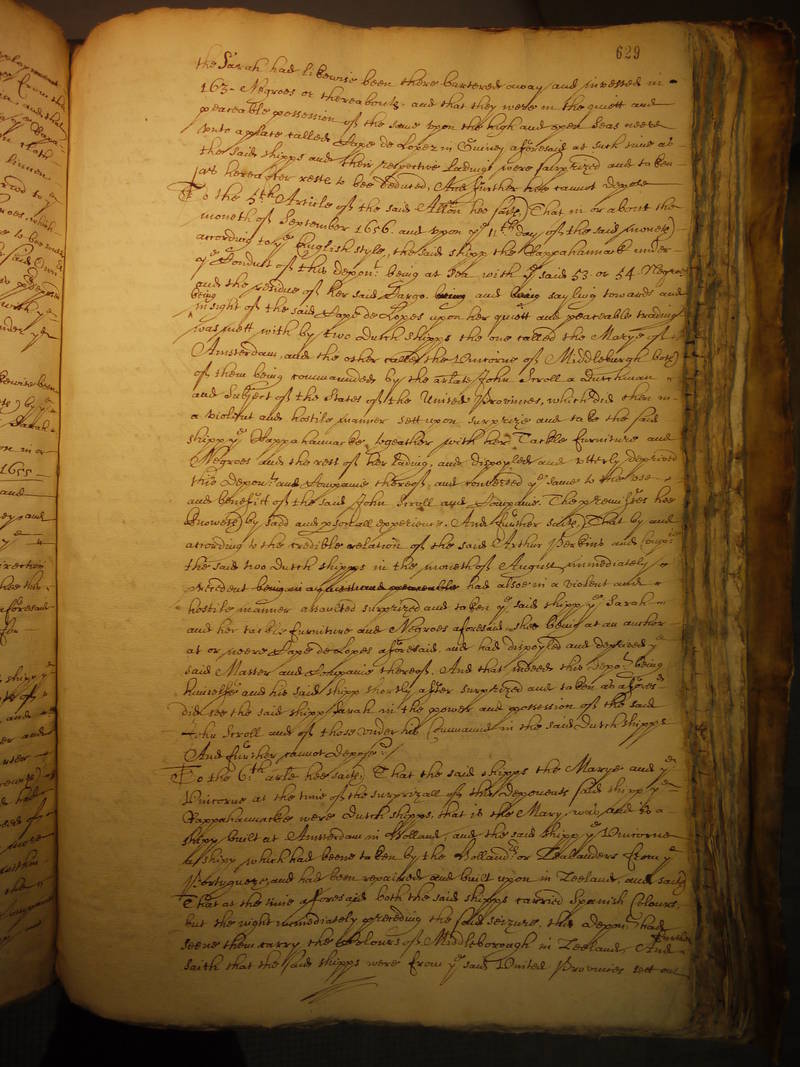 629
the Sarah had likewise been there bartered away and invested in
163 Negroes or thereabouts, and that they were in the quiett and
peaceable possession of the same upon the high and open Seas neere
unto a place called Cape de Lopez in Guiney aforesaid at such time as
the said shipps and their respective Ladings were surprized and taken
as hereafter rests to bee deduced, And further hee cannot depose
To the 5th Article of the said Allon hee saith, That in or about the
moneth of September 1656. and upon ye 11th day of the said moneth
according to ye English style, the said shipp the Rappahannock under
ye Conduct of this depont being at Sea with ye said 53 or 54 Negroes
and the residue of her said Cargo. being and being sayling towards and
being
in sight of the said Cape de Lopes upon her quiett and peaceable trading
was mett with by two Dutch shipps the one called the Marye of
Amsterdam, and the other called the Unicorne of Middleburgh both
of them being commanded by the arlate John Scroll a Dutchman
and Subject of the States of the United Provinces, which did then in
a violent and hostile manner sett upon surprize and take the said
shipp ye Rappahannacke, togeather with her Tackle furniture and
Negroes and the rest of her lading, and dispoyled and utterly deprived
this Depont and Companie thereof, and converted ye same to the use
and benefitt of the said John Scroll and Companie. The premisses hee
knoweth by sadd and psonall experience. And further saith, That by and
according to the credible relation of the said Arthur Perkins and Compie
the said two Dutch shipps in the moneth of August immediately
precedent being in a quiett and peaceable had alsoe in a violent and
hostile manner assaulted surprized and taken ye said shipp ye Sarah
and her tackle furniture and Negroes aforesaid, shee being at an anchor
at or neere Cape de Lopes aforesaid, and had dispoyled and deprived ye
said Master and Companie thereof. And that indeed this Depont being
himselfe and his said shipp shortly after surprized and taken as aforesd
did see the said shipp Sarah in the power and possession of the said
John Scroll and of those under his Command in the said Dutch shipps
And further cannot depose
To the 6th arle hee saith That the said shipps the Marye and ye
Unicorne at the time of the surprizall of this Deponents said shipp ye
Rappahannacke were Dutch shipps, that is the Mary was and is a
shipp built at Amsterdam in Holland, and the said shipp ye Unicorne
a shipp which had beene taken by the Hollandrs or Zealanders from ye
Portugueze, and had been repaired and built upon in Zeeland, and saith
That at the time aforesaid both the said shipps carried Spanish Colours,
but the night immediately preceding the said seizure, this depont had
seene them carry the Colours of Middleborough in Zeeland, And
further
saith that the said shipps were from ye said United Provinces sett out